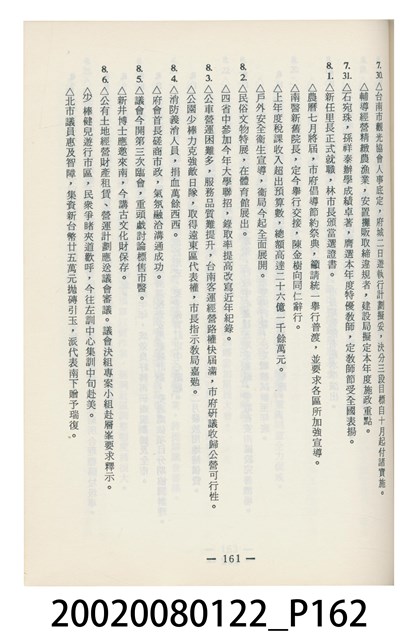 7.30.△台南市觀光協會人事底定，府城二日遊執行計劃擬妥，決分三段目標自十月起付諸實施。
△輔導經營精緻農漁業，安置攤販取締違規者，建設局擬定本年度施政重點。
7.31.△石宛珠，孫祥泰辦學成績卓著，膺選本年度特優教師，定教師節受全國表揚。
8.1.△新任里長正式就職，林市長頒當選證書。
△農曆七月將屆，市府倡導節約祭典，籲請統一舉行普渡，並要求各區所加強宣導。
△南醫新舊院長，定今舉行交接，陳金樹向同仁辭行。
△上年度稅課收入超出預算數，總額高達二十六億一千餘萬元。
△戶外安全衛生宣導，衛局今起全面展開。
8.2.△民俗文物特展，在體育館展出。
△四省中參加今年大學聯招，錄取率提高改寫近年紀錄。
8.3.△公車營運困難多，服務品質難提升，台南客運經營路權快屆滿，市府研議收歸公營可行性。
△公園少棒力克強敵日隊，取得遠東區代表權，市長指示教局嘉勉。
8.4.△消防義消人員，捐血萬餘西西。
△府會首長磋商市政，氣氛融洽溝通成功。
8.5.△議會今開第三次臨會，重頭戲討論標售市醫。
△新井博士應邀來南，今講古文化財保存。
8.6.△公有土地經營財產租賃、營運計劃應送議會審議。議會決組專案小組赴層峯要求釋示。
△少棒健兒遊行市區，民衆爭睹夾道歡呼，今往左訓中心集訓中旬赴美。
△北市議員惠及智障，集資新台幣廿五萬元拋磚引玉，派代表南下贈予瑞復。
— 161 —
20020080122_P162